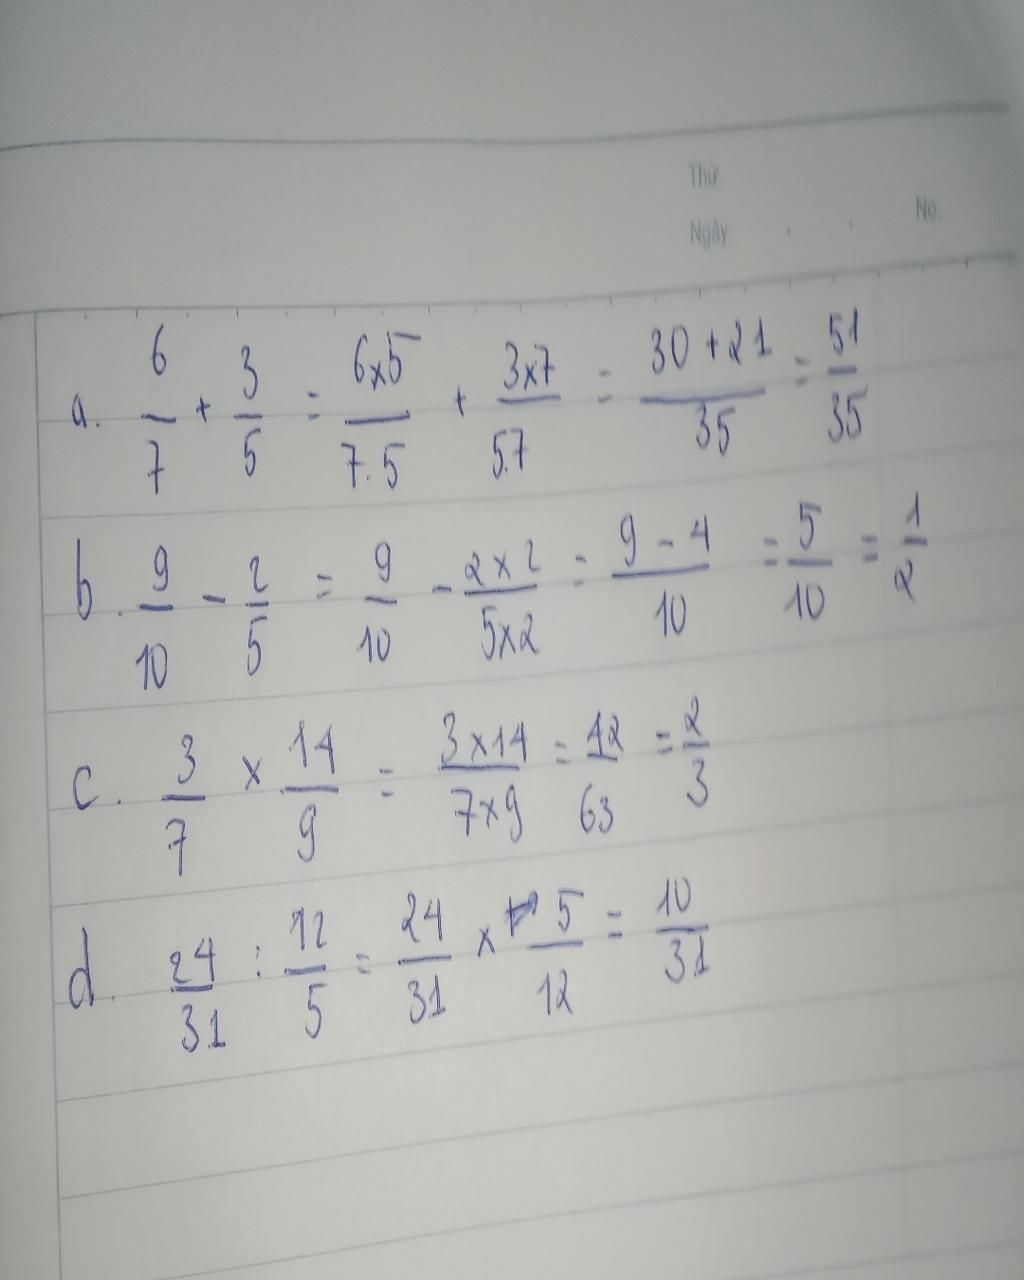 Thứ
Ngày . . No.
a. 6/7 + 3/5 = 6x5/7.5 + 3x7/5.7 = 30+21/35 = 51/35
b. 9/10 - 2/5 = 9/10 - 2x2/5x2 = 9-4/10 = 5/10 = 1/2
c. 3/7 x 14/9 = 3x14/7x9 = 42/63 = 2/3
d. 24/31 : 12/5 = 24/31 x 5/12 = 10/31